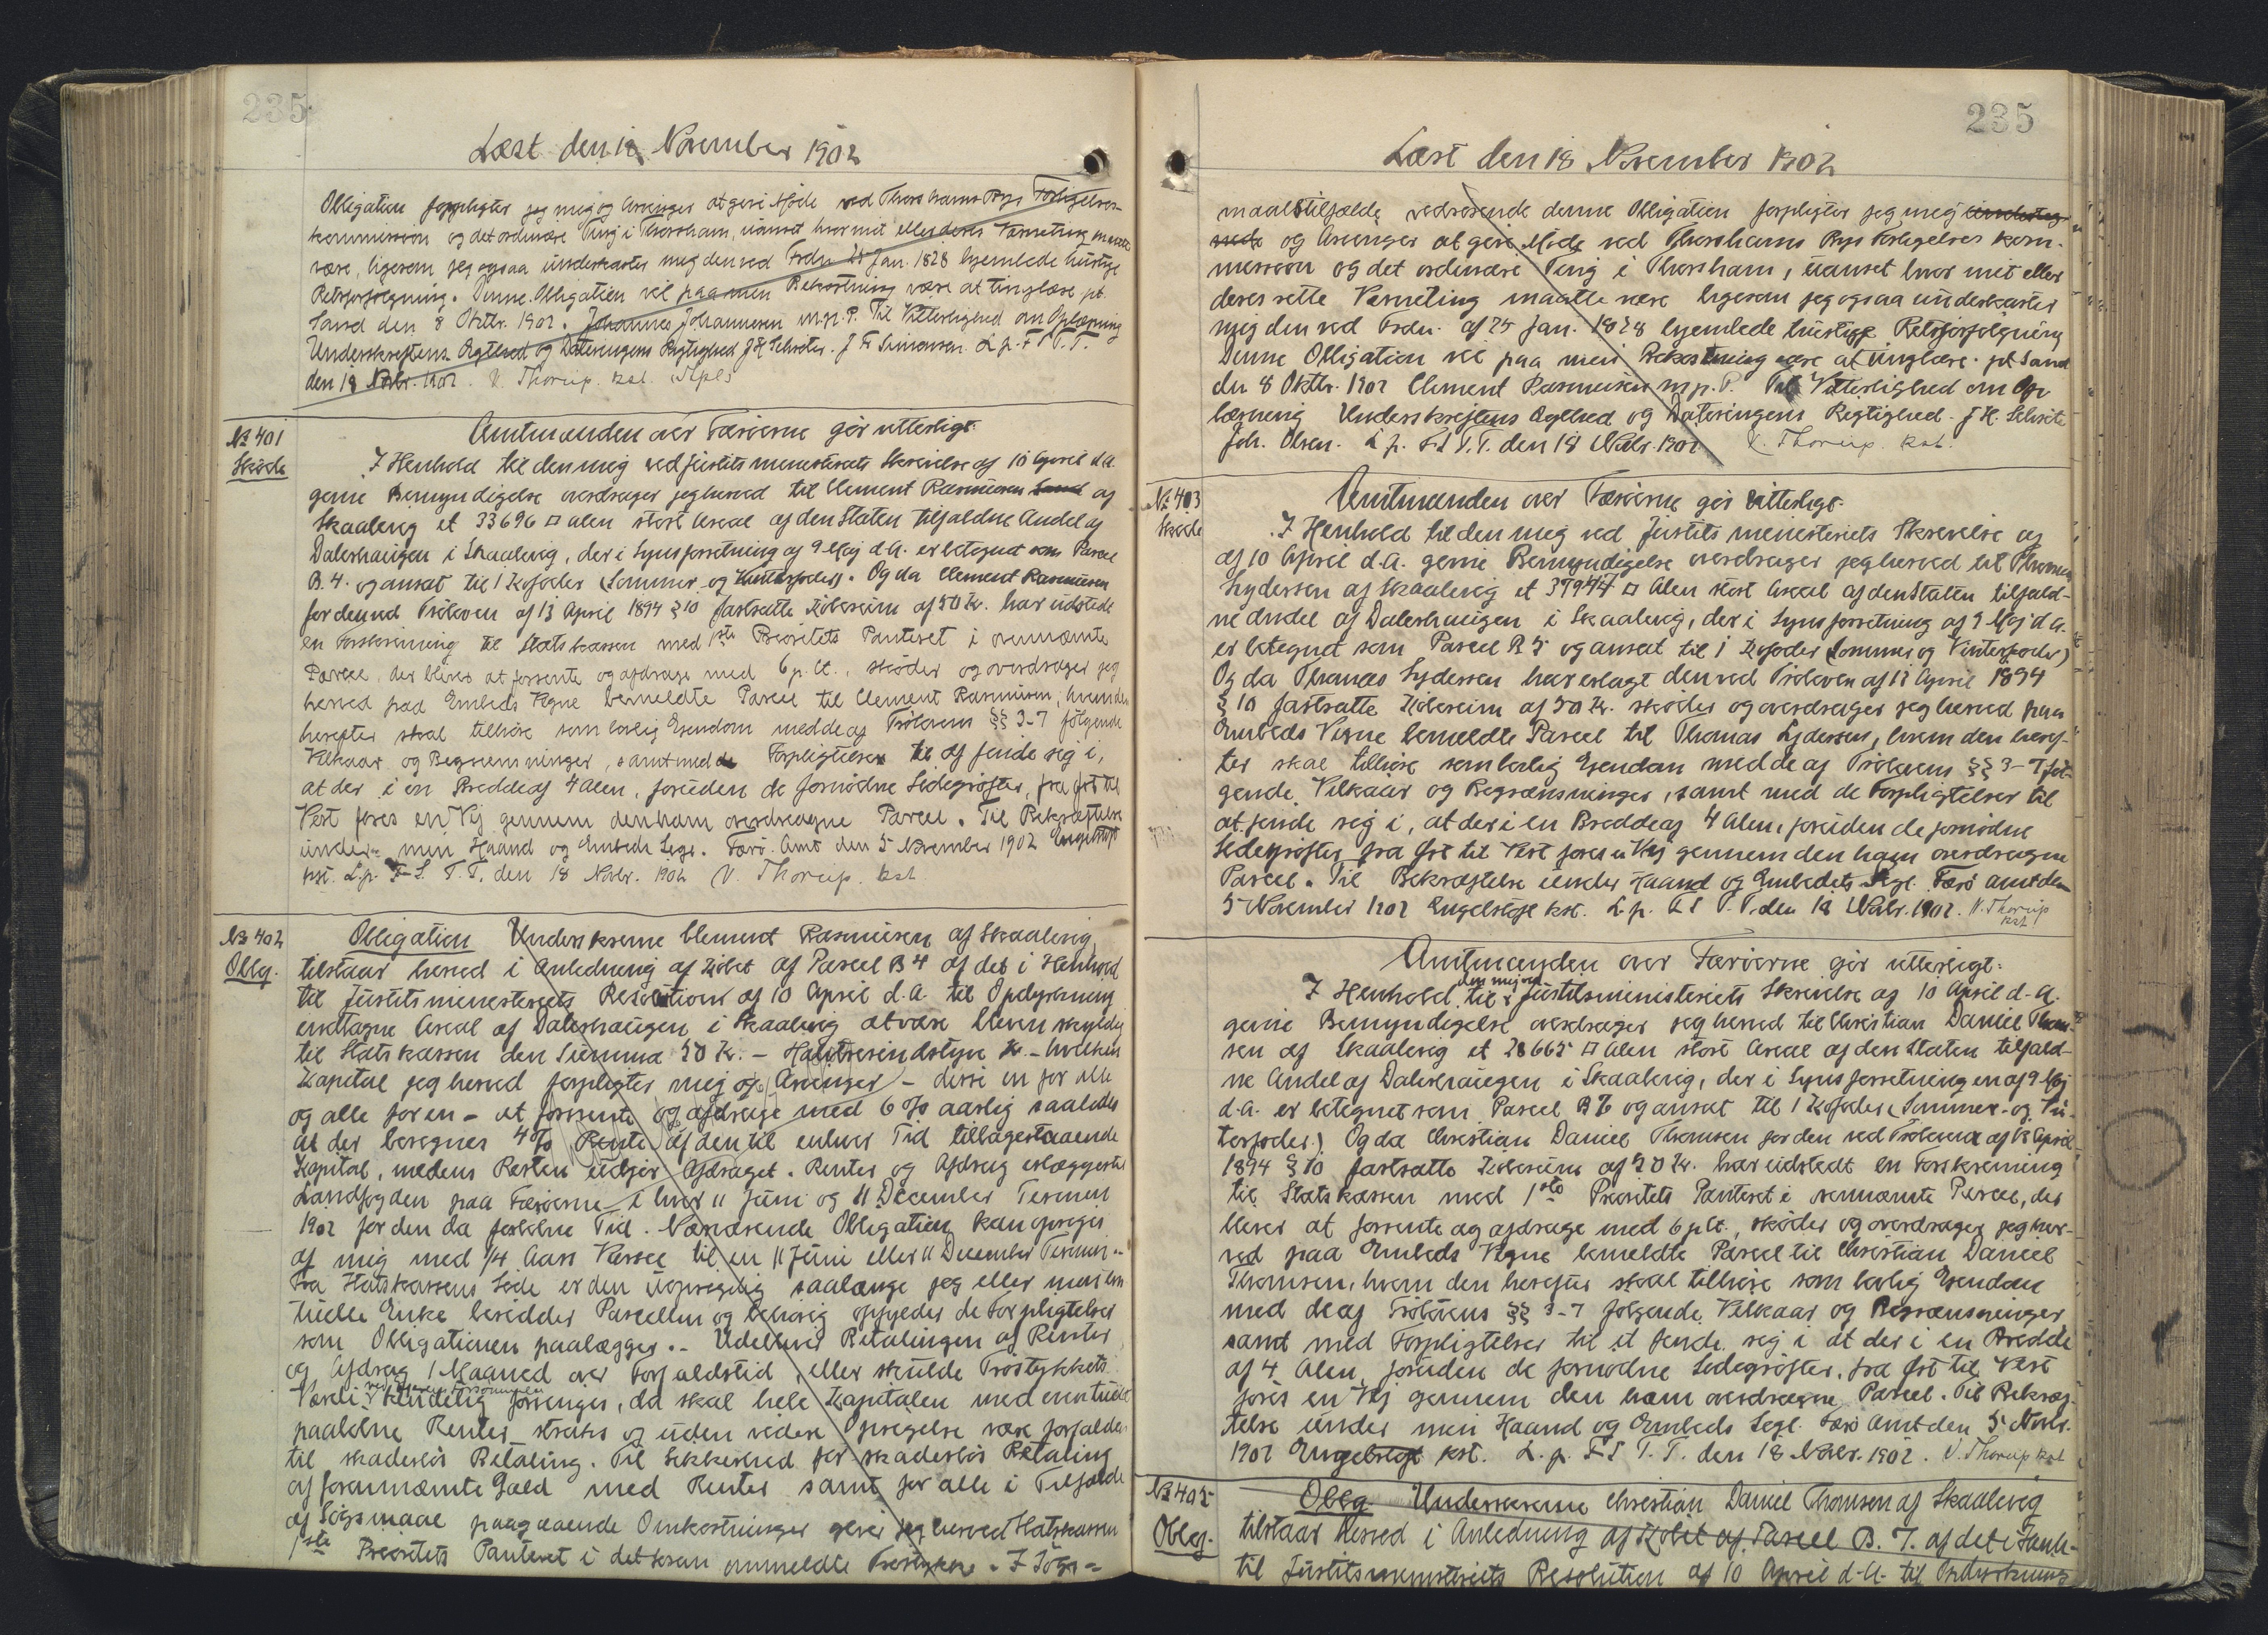 235
Læst den 18 November 1902
Obligation forpligter jeg mig og Arvinger at give Møde ved Thorshavns Bys Forligelses-
kommission og det ordinære Ting i Thorshavn, uanset hvor mit eller deres Værneting maatte
være, ligesom jeg ogsaa underkaster mig den ved Frdn. 25 Jan. 1828 hjemlede hurtige
Retsforfølgning. Denne Obligation vil paa min Bekostning være at tinglæse. pt.
Sand den 8 Oktbr. 1902. Johannes Johannesen m.p. P. Til Vitterlighed om Oplæsning
Underskriftens Ægthed og Dateringens Rigtighed J H Schrøter. J Fr Simonsen. L. p. F S T. T.
den 18 Nvbr. 1902. V. Thorup. kst.
№ 401
Skøde
Amtmanden over Færøerne gör vitterligt:
I Henhold til den mig ved Justitsministeriets Skrivelse af 10 April d.A.
givne Bemyndigelse overdrager jeg herved til Clement Rasmussen Sand af
Skaalevig et 33696 □ Alen stort Areal af den Staten tilfaldne Andel af
Dalershaugen i Skaalevig, der i Synsforretning af 9 Maj d.A. er betegnet som Parcel
B.4. og ansat til 1 Kofoder (Sommer og Vinterfoder). Og da Clement Rasmussen
for den ved Tröloven af 13 April 1894 § 10 fastsatte Købesum af 50 Kr. har udstedt
en Forskrivning til Statskassen med 1ste Prioritets Panteret i ovennævnte
Parcel, der bliver at forrente og afdrage med 6 p.Ct., skøder og overdrager jeg
herved paa Embeds Vegne bemeldte Parcel til Clement Rasmussen, hvem den
herefter skal tilhøre som lovlig Ejendom med de af Trölovens §§ 3-7 følgende
Vilkaar og Begrænsninger, samt med de Forpligtelser til at finde sig i,
at der i en Bredde af 4 Alen, foruden de fornødne Sidegrøfter, fra Øst til
Vest føres en Vej gennem den ham overdragne Parcel. Til Bekræftelse
under min Haand og Embeds Segl. Færø Amt den 5 November 1902 Engelstoft
kst. L. p. F S. T. T. den 18 Novbr. 1902 V. Thorup. kst
№ 402
Oblg.
Obligation Underskrevne Clement Rasmussen af Skaalevig,
tilstaar herved i Anledning af Købet af Parcel B 4 af det i Henhold
til Justitsministeriets Resolution af 10 April d.A. til Opdyrkning
indtagne Areal af Dalershaugen i Skaalevig at være bleven skyldig
til Statskassen den Summa 50 Kr. – Halvtresindstyve Kr. – hvilken
Kapital jeg herved forpligter mig og Arvinger – disse en for alle
og alle for en – at forrente og afdrage med 6 % aarlig saaledes
at der beregnes 4 % Rente af den til enhver Tid tilbagestaaende
Kapital, medens Resten udgør Afdraget. Renter og Afdrag erlægges til
Landfogden paa Færøerne i hver 11 Juni og 11 December Termin
1902 for den da forløbne Tid. Nærværende Obligation kan opsiges
af mig med 1/4 Aars Varsel til en 11 Juni eller 11 December Termin.
Fra Statskassens Side er den uopsigelig saalænge jeg eller min even
tuelle Enke besidder Parcellen og behørig opfylder de Forpligtelser
som Obligationen paalægger. – Udebliver Betalingen af Renter
og Afdrag 1 Maaned over Forfaldstid, eller skulde Tröstykkets
Værdi kendelig forringes, da skal hele Kapitalen med eventuelt
paaløbne Renter straks og uden videre Opsigelse være forfalden
til skadesløs Betaling. Til Sikkerhed for skadesløs Betaling
af forannævnte Gæld med Renter samt for alle i Tilfælde
af Søgsmaal paagaaende Omkostninger giver jeg herved Statskassen
1ste Prioritets Panteret i det foran ommeldte Tröstykke. I Søgs-
235
Læst den 18 November 1902
maalstilfælde vedrørende denne Obligation forpligter jeg mig
og Arvinger at give Møde ved Thorshavns Bys Forligelses kom-
mission og det ordinære Ting i Thorshavn, uanset hvor mit eller
deres rette Værneting maatte være ligesom jeg ogsaa underkaster
mig den ved Frdn. af 25 Jan. 1828 hjemlede hurtige Retsforfølgning
Denne Obligation vil paa min Bekostning være at tinglæse. pt Sand
den 8 Oktbr. 1902 Clement Rasmussen m.p. P. Til Vitterlighed om Op
læsning Underskriftens Ægthed og Dateringens Rigtighed. J H. Schrøte
Joh. Olsen. L. p. F S T. T. den 18 Novbr. 1902 V. Thorup. kst.
№ 403
Skøde
Amtmanden over Færøerne gör vitterligt.
I Henhold til den mig ved Justitsministeriets Skrivelse af
af 10 April d.A. givne Bemyndigelse overdrager jeg herved til Thomas
Lydersen af Skaalevig et 37944 □ Alen stort Areal af den Staten tilfald-
ne Andel af Dalershaugen i Skaalevig, der i Synsforretning af 9 Maj d.A.
er betegnet som Parcel B 5 og ansat til 1 Kofoder (Sommer og Vinterfoder)
Og da Thomas Lydersen har erlagt den ved Tröloven af 13 April 1894
§ 10 fastsatte Købesum af 50 Kr. skøder og overdrager jeg herved paa
Embeds Vegne bemeldte Parcel til Thomas Lydersen, hvem den heref-
ter skal tilhøre som lovlig Ejendom med de af Trölovens §§ 3-7 føl-
gende Vilkaar og Begrænsninger, samt med de Forpligtelser til
at finde sig i, at der i en Bredde af 4 Alen, foruden de fornødne
Sidegrøfter fra Øst til Vest føres en Vej gennem den ham overdragne
Parcel. Til Bekræftelse under Haand og Embedets Segl. Færø Amt den
5 November 1902 Engelstoft kst. L. p. F S T. T. den 18 Novbr. 1902. V. Thorup
kst
Amtmanden over Færøerne gör vitterligt:
I Henhold til den mig ved Justitsministeriets Skrivelse af 10 April d.A.
givne Bemyndigelse overdrager jeg herved til Christian Daniel Thom-
sen af Skaalevig et 28665 □ Alen stort Areal af den Staten tilfald-
ne Andel af Dalershaugen i Skaalevig, der i Synsforretningen af 9 Maj
d.A. er betegnet som Parcel B 7 og ansat til 1 Kofoder (Sommer- og Vin-
terfoder). Og da Christian Daniel Thomsen for den ved Tröloven af 13 April
1894 § 10 fastsatte Købesum af 50 Kr. har udstedt en Forskrivning
til Statskassen med 1ste Prioritets Panteret i ovennævnte Parcel, der
bliver at forrente og afdrage med 6 p Ct., skøder og overdrager jeg her-
ved paa Embeds Vegne bemeldte Parcel til Christian Daniel
Thomsen, hvem den herefter skal tilhøre som lovlig Ejendom
med de af Trölovens §§ 3-7 følgende Vilkaar og Begrænsninger
samt med Forpligtelser til at finde sig i at der i en Bredde
af 4 Alen, foruden de fornødne Sidegrøfter, fra Øst til Vest
føres en Vej gennem den ham overdragne Parcel. Til Bekræf-
telse under min Haand og Embeds Segl. Færø Amt den 5 Novbr.
1902 Engelstoft kst. L. p. F S T. T. den 18 Novbr. 1902. V. Thorup kst
№ 405
Oblg.
Oblg. Underskrevne Christian Daniel Thomsen af Skaalevig
tilstaar herved i Anledning af Købet af Parcel B. 7. af det i Henh-
til Justitsministeriets Resolution af 10 April d.A. til Opdyrkning